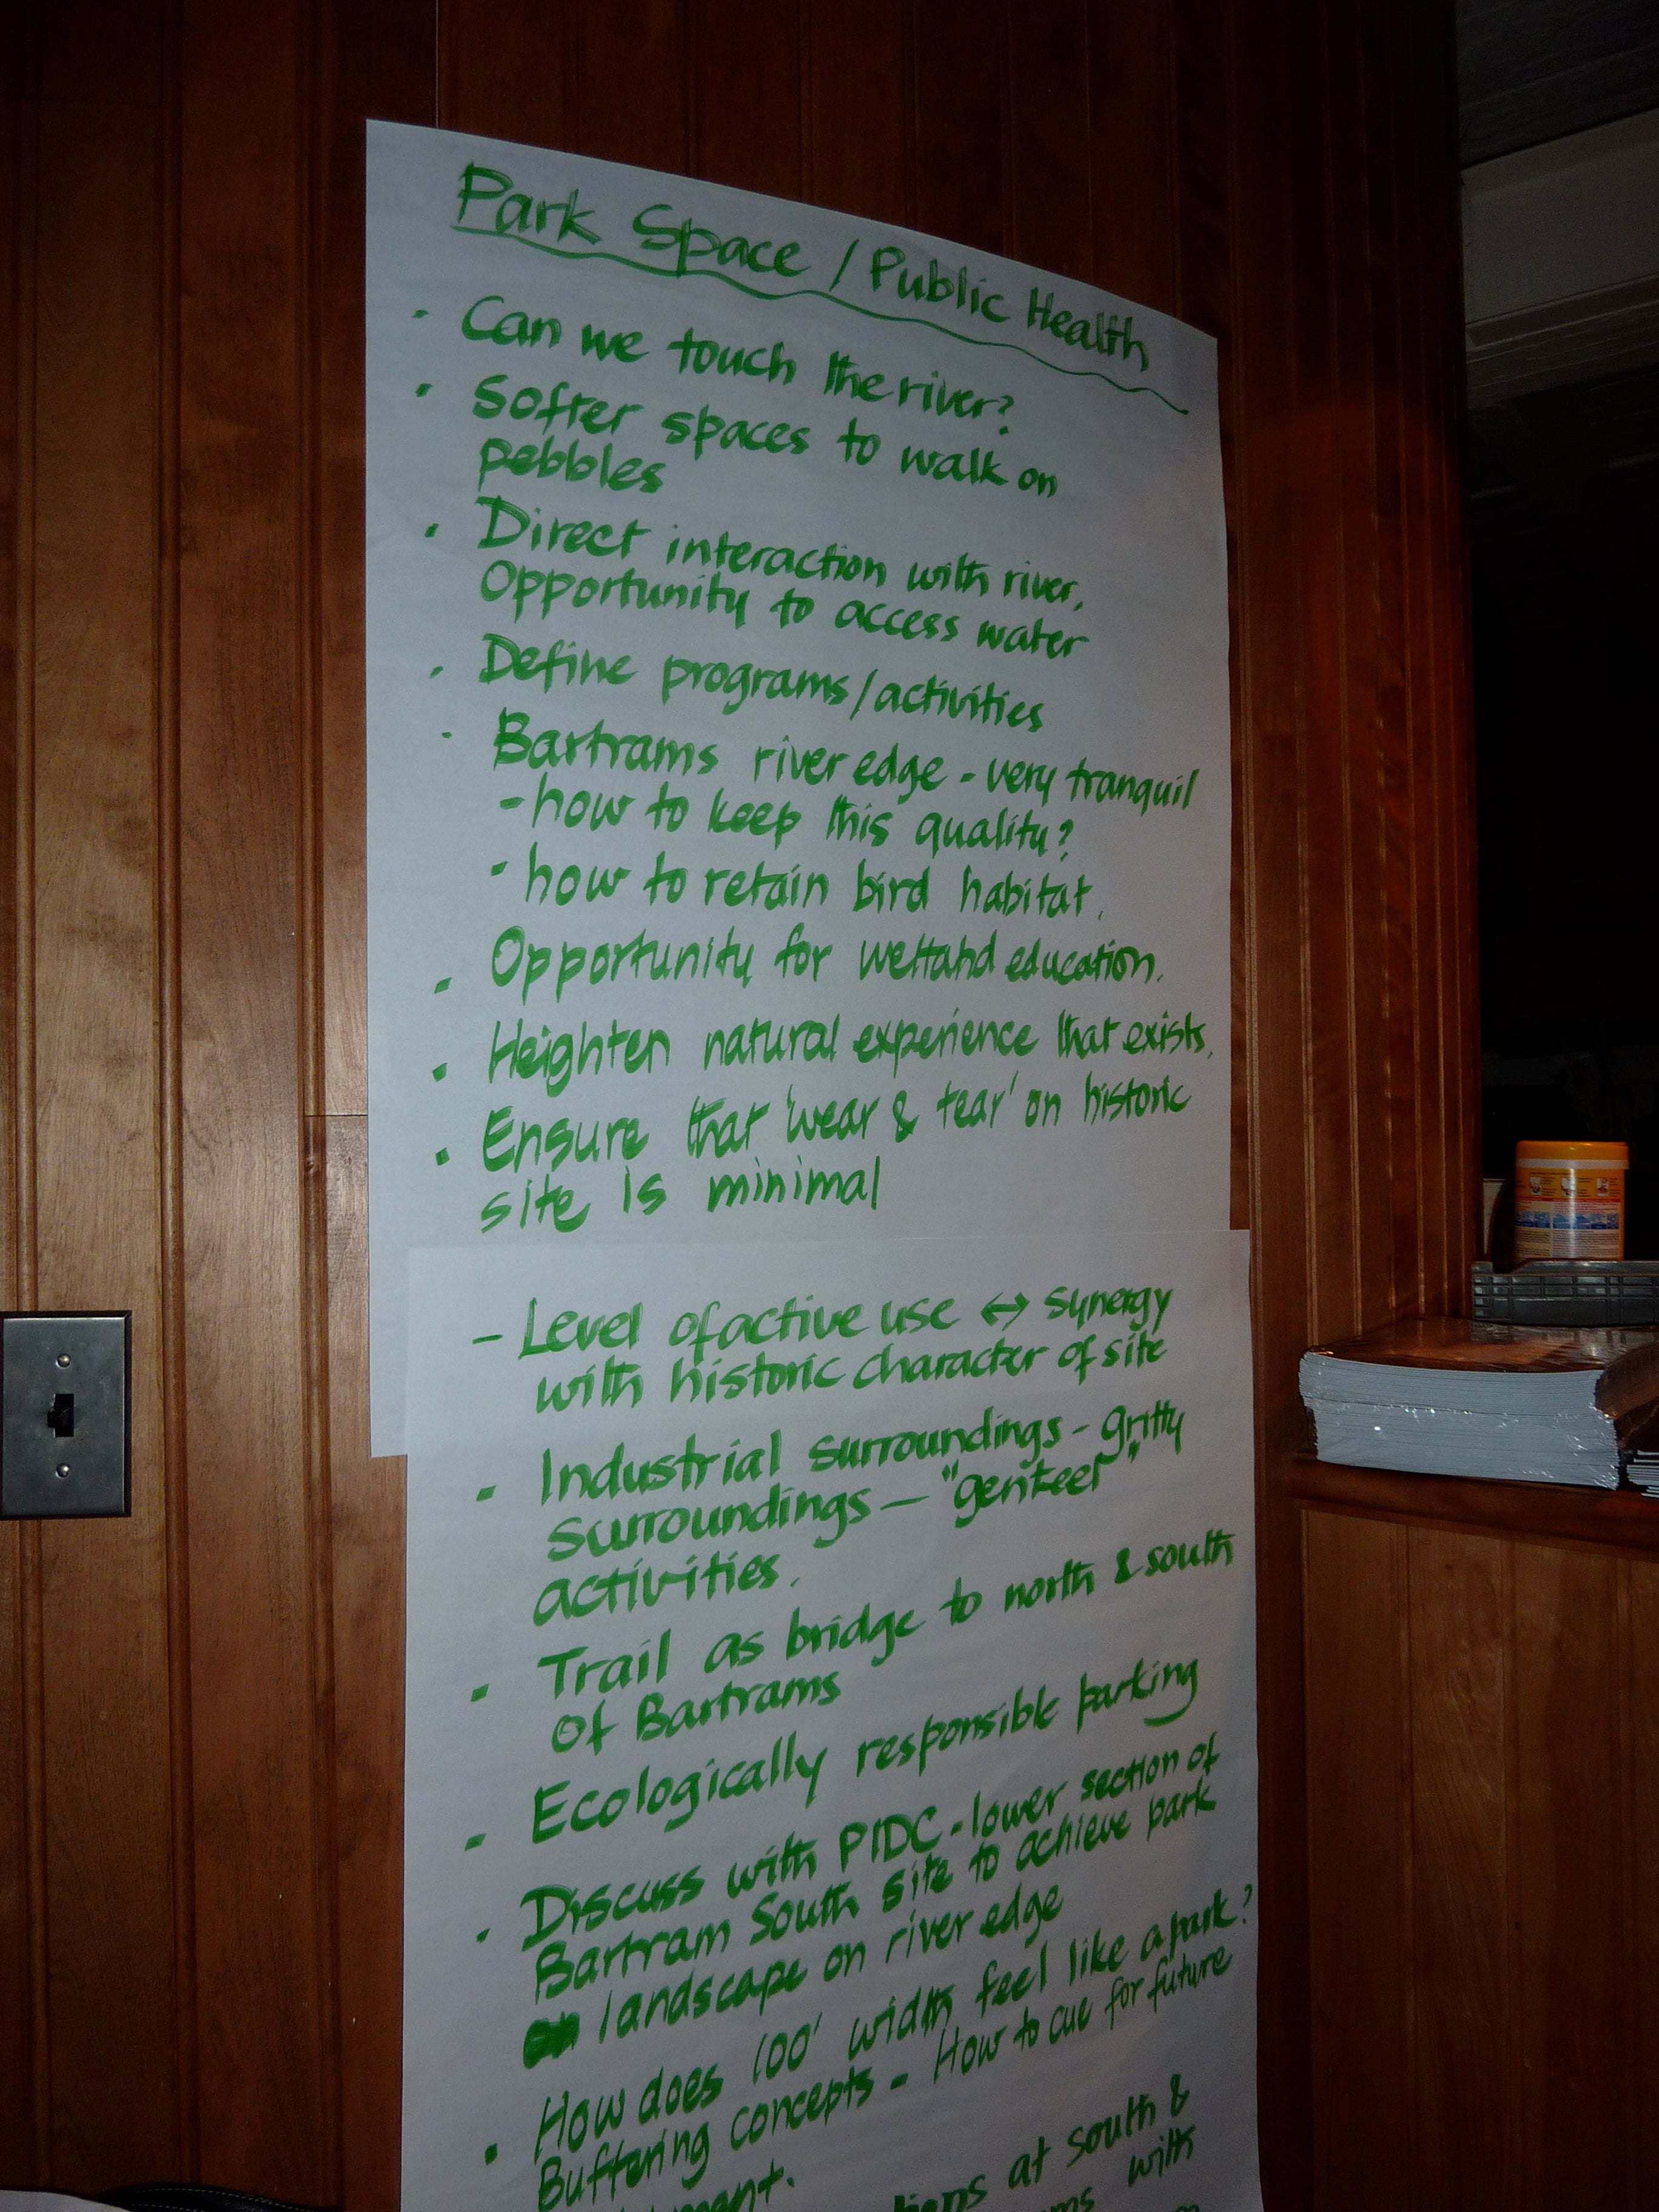 Park Space / Public Health
· Can we touch the river?
· Softer spaces to walk on
pebbles
· Direct interaction with river,
Opportunity to access water
· Define programs/activities
· Bartrams river edge - very tranquil
- how to keep this quality?
- how to retain bird habitat.
· Opportunity for wetland education.
· Heighten natural experience that exists.
· Ensure that 'wear & tear' on historic
site is minimal
- Level of active use ↔ synergy
with historic character of site
· Industrial surroundings - gritty
surroundings — "genteel"
activities.
· Trail as bridge to north & south
of Bartrams
· Ecologically responsible parking
· Discuss with PIDC - lower section of
Bartram South site to achieve park
landscape on river edge
· How does 100' width feel like a park?
Buffering concepts - How to cue for future
at south &
with